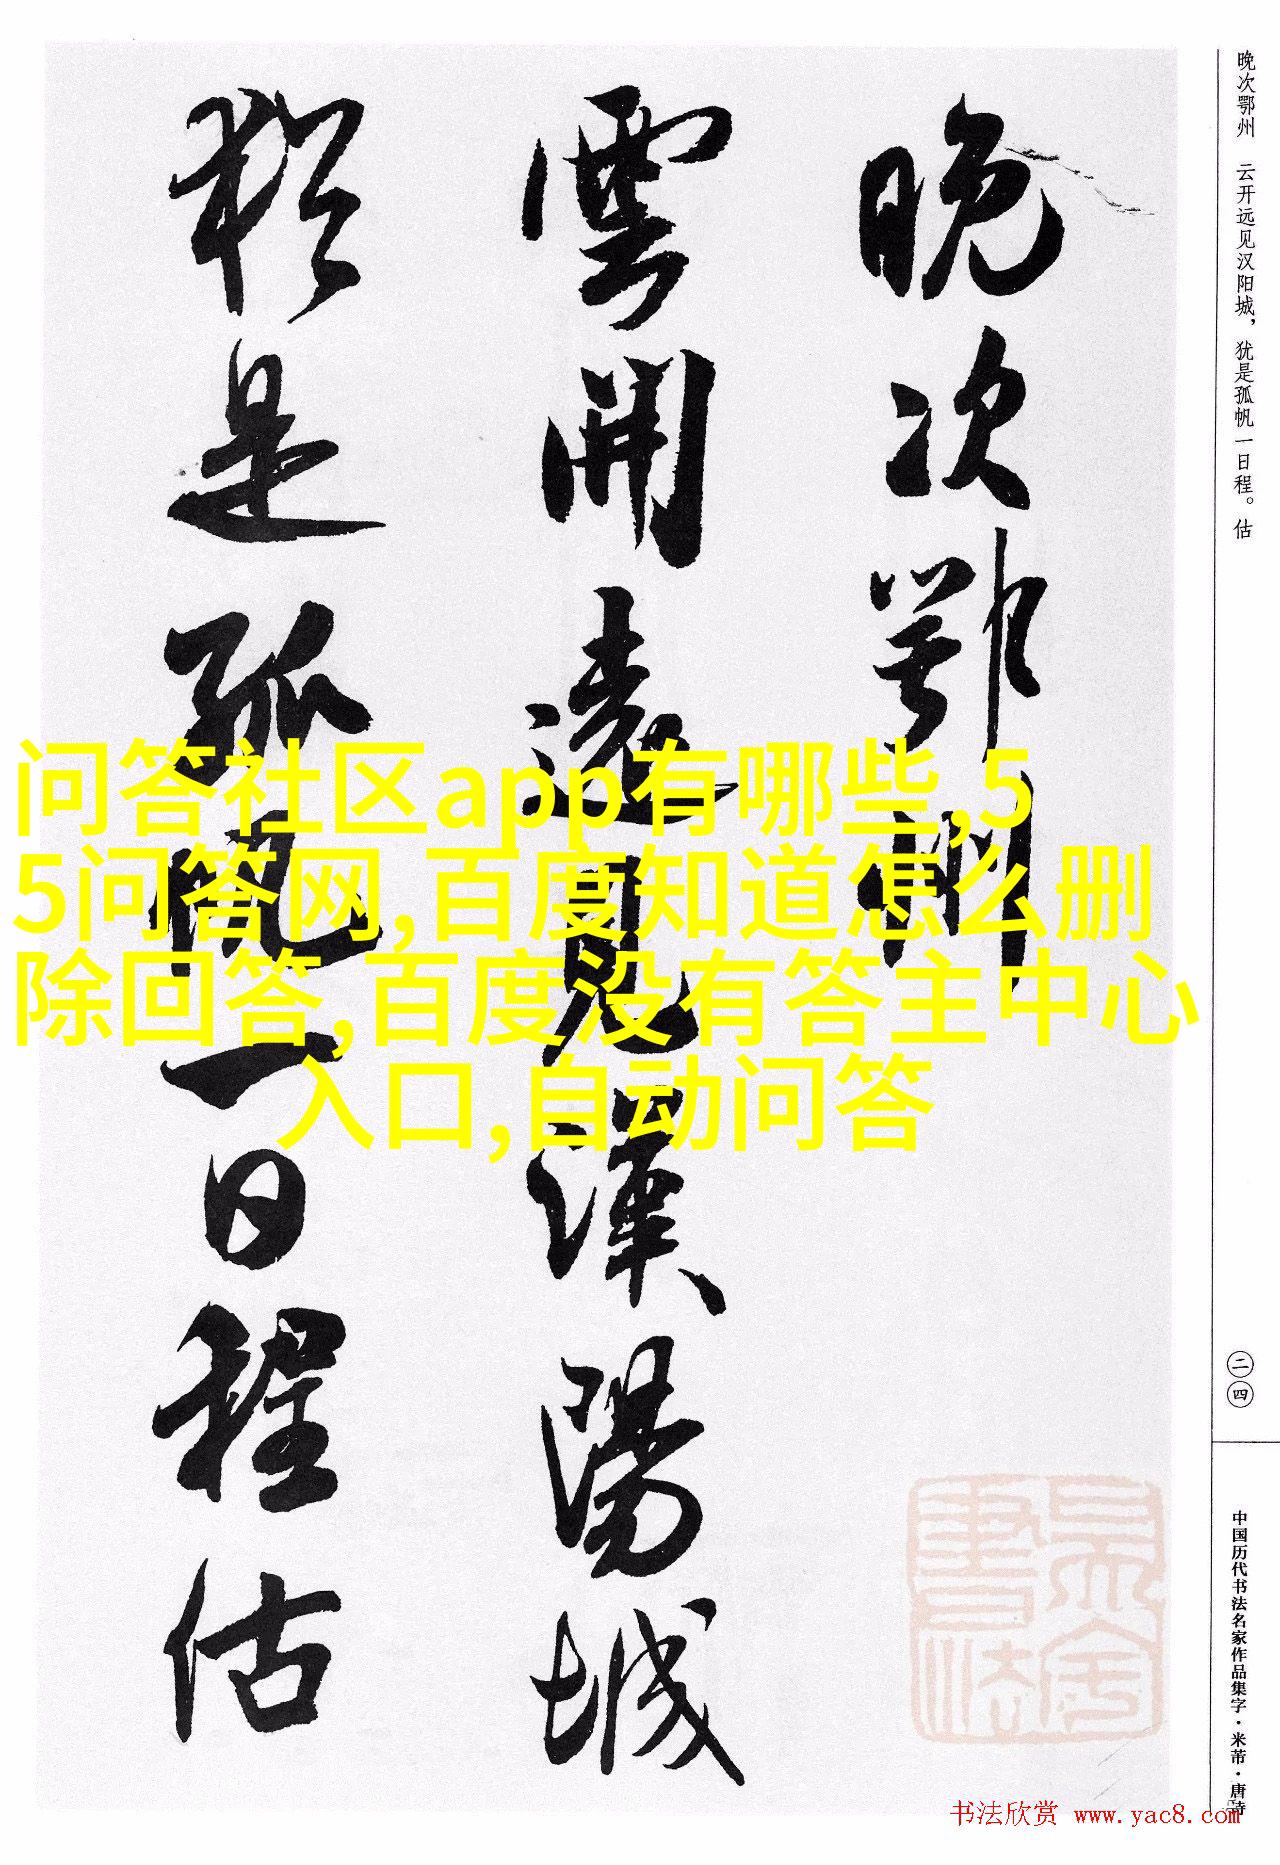 晚次鄂州
雲開遠見漢陽城
猶是孤帆一日程估
问答社区app有哪些,5
5问答网,百度知道怎么删
除回答,百度没有答主中心
入口,自动问答
晚次鄂州 云开远见汉阳城，犹是孤帆一日程。估
二四
中国历代书法名家作品集字·米芾·唐诗
书法欣赏 www.yac8.com